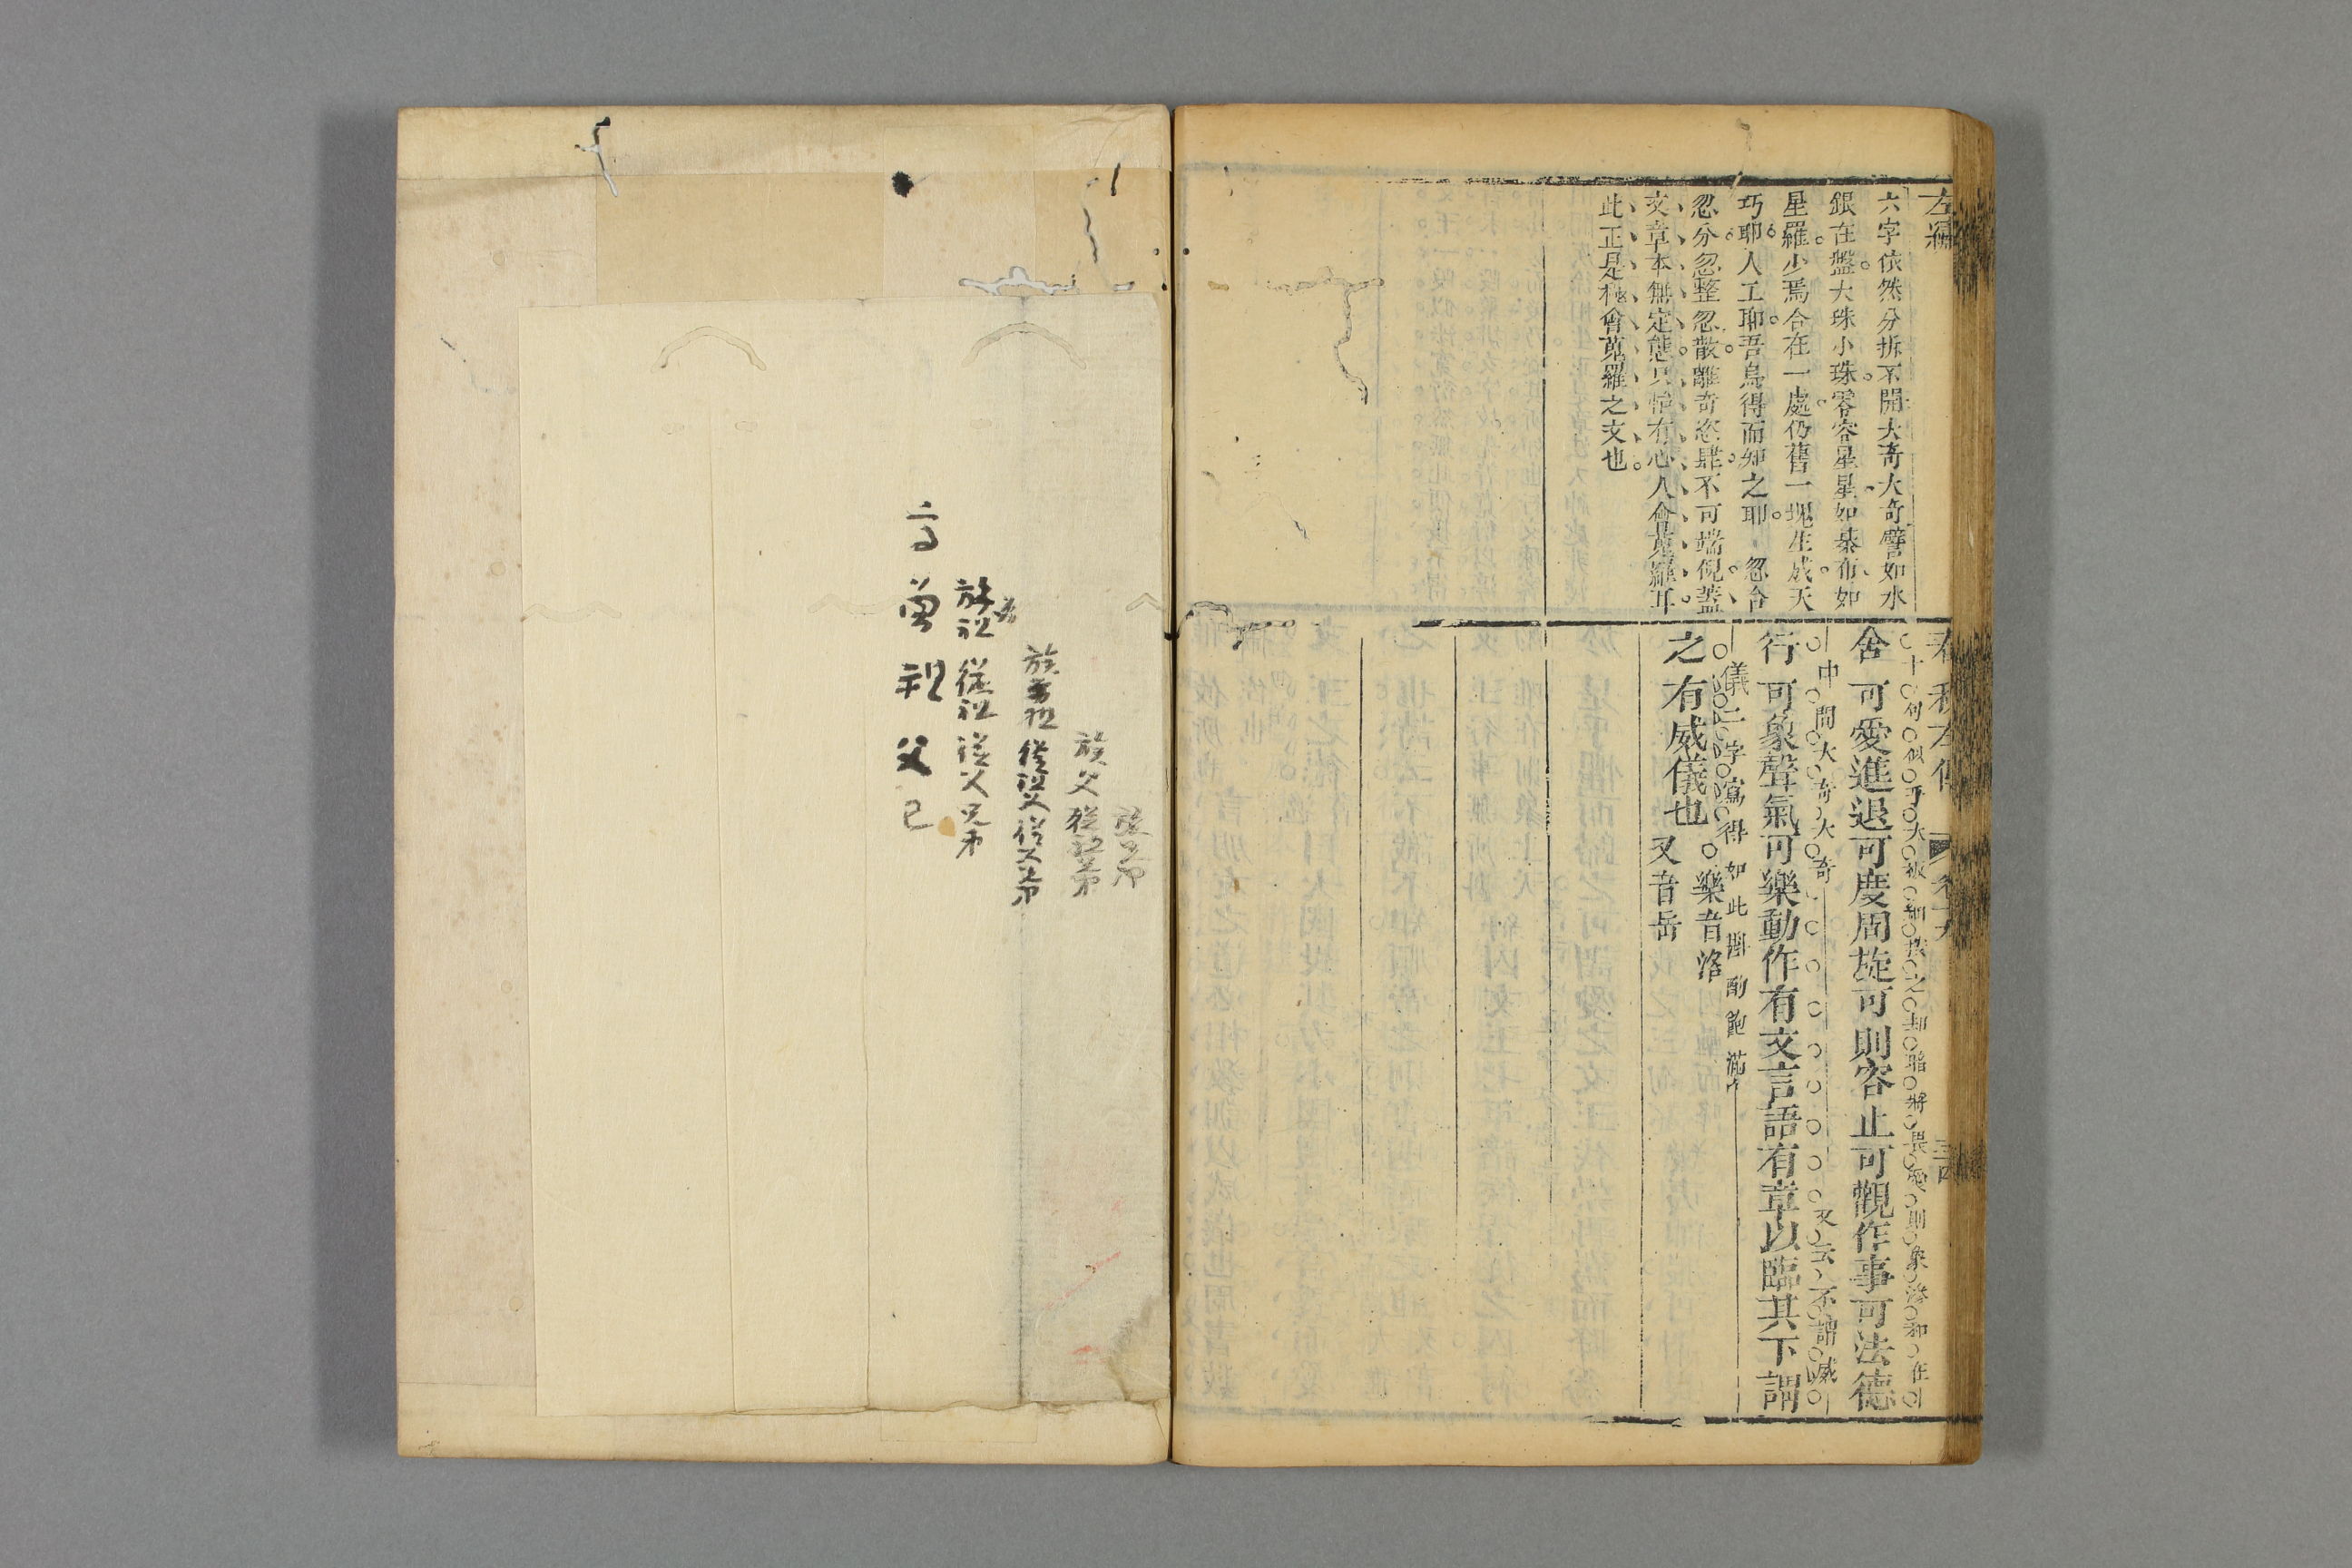 左繡
六字依然分拆不開大奇大奇譬如水
銀在盤大珠小珠零零星星如棊布如
星羅少焉合在一處仍舊一塊生成天
巧耶人工耶吾烏得而知之耶 忽合
忽分忽整忽散離奇恣肆不可端倪蓋
文章本無定態只怕有心人會蒐羅耳
此正是極會蒐羅之文也
春秋左傳 卷十九 三四
舍可愛進退可度周旋可則容止可觀作事可法德
中間大奇大奇 又云不謂威
行可象聲氣可樂動作有文言語有章以臨其下謂
儀二字寫得如此圓酣飽滿
之有威儀也
樂音洛
又音岳
族兄弟
族父 從祖兄弟
族祖 從祖父 從父兄弟
族曾祖 從祖 從父 兄弟
高 曾 祖 父 己